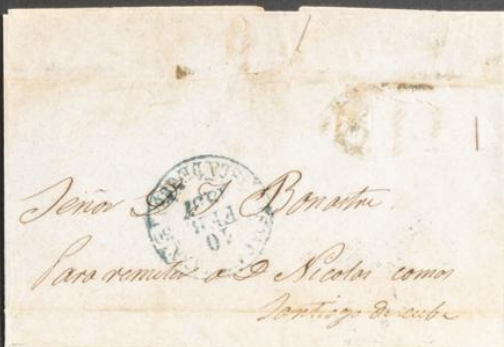 Señor D J Bonastre
Para remitir a D Nicolas comas
Santiago de cuba
10
FEB